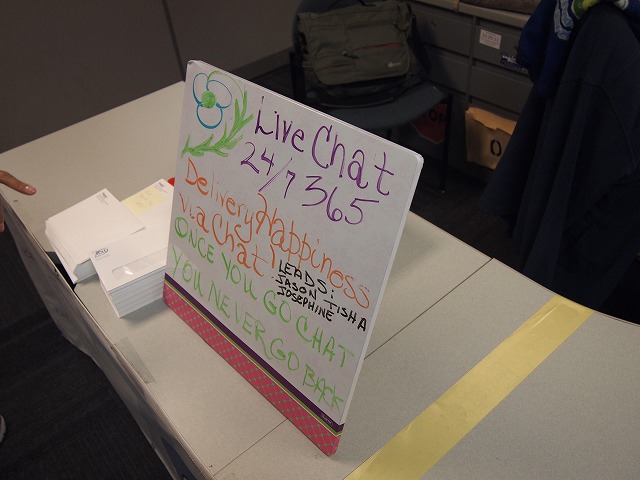 Live Chat
24/7 365
Delivery Happiness
via Chat!
LEADS:
JASON TISHA
JOSEPHINE
ONCE YOU GO CHAT
YOU NEVER GO BACK